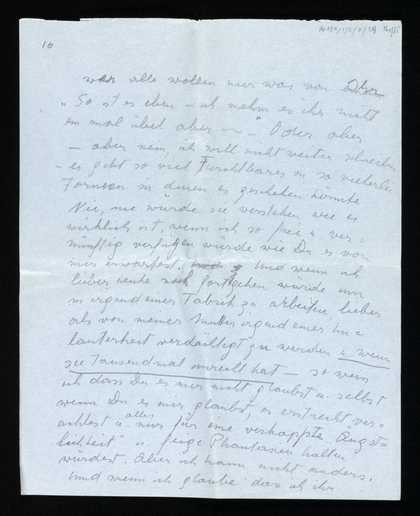 10
wer alle wollen nur was von
"So ist es eben – ich nehm es ihr nicht
ein mal übel aber – " Oder aber
– aber nein, ich will nicht weiter schreiben
– es gibt so viel Furchtbares in so vielerlei
Formen in denen es geschehen könnte
Nie, nie würde sie verstehen wie es
wirklich ist, wenn ich so frei u. ver-
nünftig verfügen würde wie Du es von
mir erwartest. Und wenn ich
lieber heute noch fortgehen würde um
in irgend einer Fabrik zu arbeiten, lieber
als von meiner Mutter irgend einer Un-
lauterkeit verdächtigt zu werden u. wenn
sie Tausendmal unrecht hat – so weiss
ich dass Du es mir nicht glaubst u. selbst
wenn Du es mir glaubst, es erst recht ver-
achtest u. alles nur für eine verkappte "Ängst-
lichkeit" u. feige Phantasien halten
würdest. Aber ich kann nicht anders.
Und wenn ich glaube das ich ihr